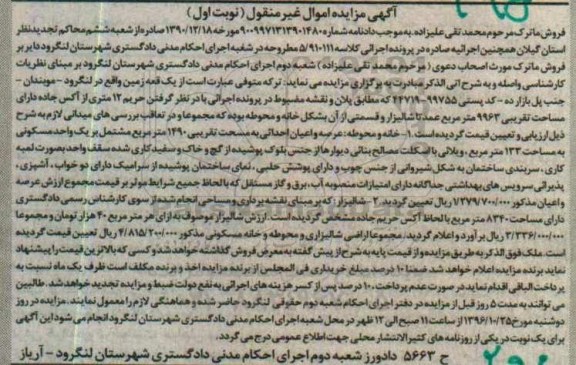 آگهی مزایده اموال غیر منقول (نوبت اول)
فروش ماترک مرحوم محمد تقی علیزاده، به موجب دادنامه شماره ۹۰۰۹۹۷۱۳۱۳۹۰۱۴۸۰ مورخه ۱۳۹۰/۱۲/۱۸ صادره از شعبه ششم محاکم تجدیدنظر
استان گیلان همچنین اجرائیه صادره در پرونده اجرائی کلاسه ۵/۹۱۰۱۱۱ مطروحه در شعبه اجرای احکام مدنی دادگستری شهرستان لنگرود دایر بر
فروش ماترک مورث اصحاب دعوی (مرحوم محمد تقی علیزاده) شعبه دوم اجرای احکام مدنی دادگستری شهرستان لنگرود بر مبنای نظریات
کارشناسی واصله و به شرح آتی الذکر مبادرت به برگزاری مزایده می نماید: ترکه متوفی عبارت است از یک قعه زمین واقع در لنگرود - موبندان -
جنب پل بازار ده - کد پستی ۹۹۷۵۵-۴۴۷۱۴ که مطابق پلان و نقشه مضبوط در پرونده اجرائی با در نظر گرفتن حریم ۱۲ متری از آکس جاده دارای
مساحت تقریبی ۹۹۶۳ متر مربع عمدتا شالیزار و قسمتی از آن بشکل خانه و محوطه بوده که مجموعا و در تعاقب بررسی های میدانی لازم به شرح
ذیل ارزیابی و تعیین قیمت گردیده است. ۱- خانه و محوطه: عرصه و اعیان احداثی به مساحت تقریبی ۱۴۹۰ متر مربع مشتمل بر یک واحد مسکونی
به مساحت ۱۳۳ متر مربع، ویلائی با اسکلت مصالح بنائی دیوارها از جنس بلوک پوشیده از گچ و خاک و سفید کاری شده سقف واحد بصورت لمبه
کاری، سربندی ساختمان به شکل شیروانی از جنس چوب و دارای پوشش حلبی، نمای ساختمان پوشیده از سرامیک دارای دو خواب، آشپزی،
پذیرائی سرویس های بهداشتی جداگانه دارای امتیازات منصوبه آب، برق و گاز مستقل که بالحاظ جمیع شرایط موثر بر قیمت مجموع ارزش عرصه
و اعیان مذکور ۱/۴۷۹/۷۰۰/۰۰۰ ریال تعیین گردید. ۲- شالیزار: که بر مبنای نقشه برداری و مساحی انجام شده از سوی کارشناس رسمی دادگستری
دارای مساحت ۸۳۴۰ متر مربع بالحاظ آکس حریم جاده مشخص گردیده است. ارزش شالیزار موصوف به ازای هر متر مربع ۴۰ هزار تومان و مجموعا
۳/۳۳۶/۰۰۰/۰۰۰ ریال برآورد و اعلام گردید. مجموعا اراضی شالیزاری و محوطه و خانه مسکونی مذکور ۴/۸۱۵/۷۰۰/۰۰۰ ریال تعیین قیمت گردیده
است. ملک فوق الذکر به طریق مزایده و از قیمت پایه به شرح از پیش گفته به معرض فروش گذاشته خواهد شد و کسی که بالاترین قیمت را پیشنهاد
نماید برنده مزایده اعلام خواهد شد. ضمنا ۱۰ درصد مبلغ خریداری فی المجلس از برنده مزایده اخذ و برنده مکلف است ظرف یک ماه نسبت به
پرداخت الباقی اقدام نماید در صورت عدم پرداخت، ۱۰ درصد پس از کسر هزینه های اجرائی به نفع دولت ضبط و مزایده تجدید خواهد شد. طالبین
می توانند به مدت ۵ روز قبل از مزایده در دفتر اجرای احکام شعبه دوم حقوقی لنگرود حاضر شده و هماهنگی لازم را معمول نمایند. مزایده در روز
دوشنبه مورخ ۱۳۹۶/۱۰/۲۵ از ساعت ۱۱ صبح الی ۱۲ ظهر در محل شعبه اجرای احکام مدنی دادگستری شهرستان لنگرود انجام می شود این آگهی
برای یک نوبت در یکی از روزنامه های کثیرالانتشار محلی جهت اطلاع عمومی درج می گردد.
ح ۵۶۶۳ دادورز شعبه دوم اجرای احکام مدنی دادگستری شهرستان لنگرود - آریاز